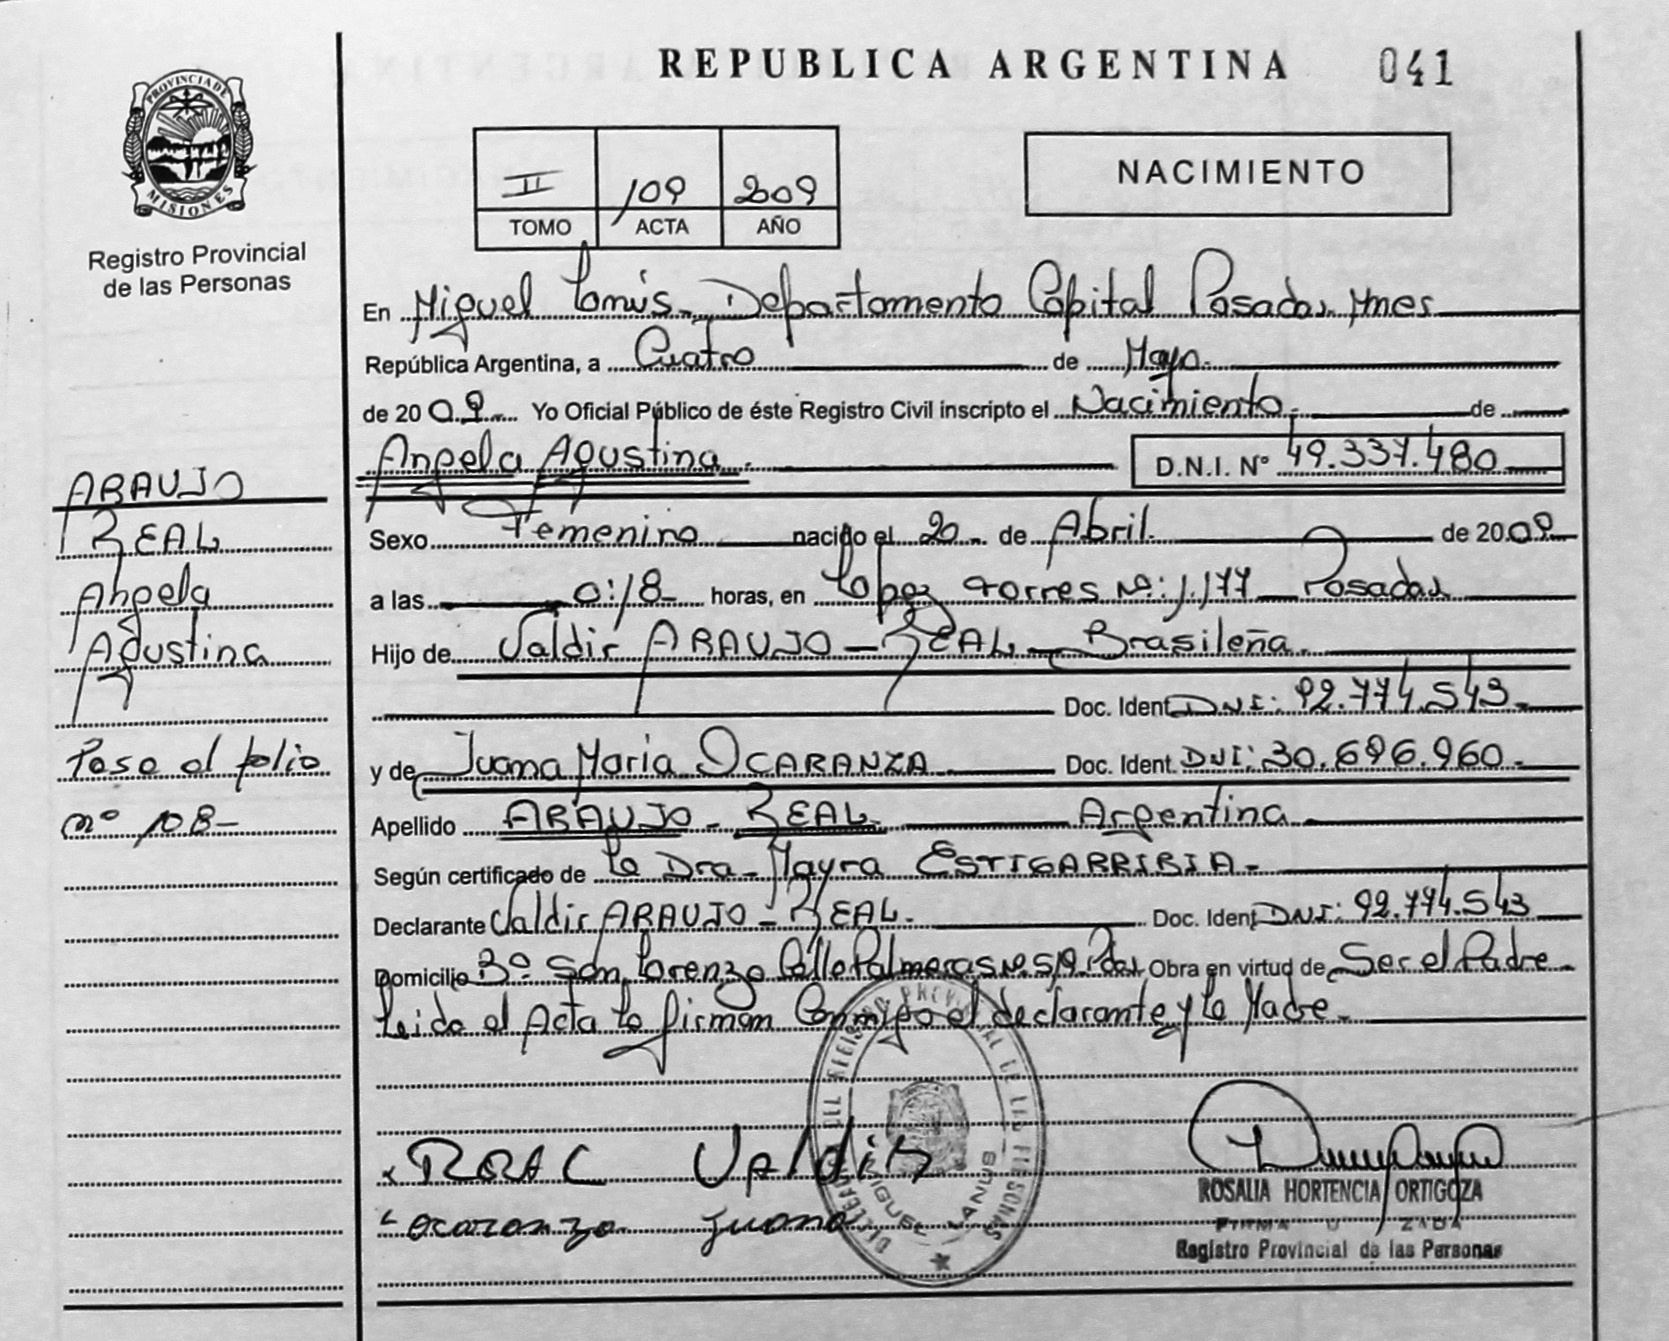 REPUBLICA ARGENTINA 041
PROVINCIA DE MISIONES
Registro Provincial
de las Personas
II 109 209
TOMO ACTA AÑO
NACIMIENTO
En Miguel Lanús - Departamento Capital Posadas Mnes
República Argentina, a Cuatro de Mayo.
de 2009 Yo Oficial Público de éste Registro Civil inscripto el Nacimiento. de
Angela Agustina. D.N.I. Nº 49.337.480
Sexo Femenino nacido el 20 de Abril. de 2009
a las 0:18 horas, en Lopez Torres Nº: 1.177 Posadas
Hijo de Valdir ARAUJO - REAL - Brasileña.
Doc. Ident DNI: 92.774.543
y de Juana Maria OCARANZA Doc. Ident. DNI: 30.696.960
Apellido ARAUJO - REAL Argentina
Según certificado de la Dra. Mayra ESTIGARRIBIA -
Declarante Valdir ARAUJO - REAL. Doc. Ident DNI: 92.774.543
Domicilio Bº San Lorenzo Calle Palmeras Nº S/Nº Pdas Obra en virtud de Ser el Padre
Leida el Acta la firman Conmigo el declarante y la Madre.
ARAUJO
REAL
Angela
Agustina
Pase al folio
nº 108-
x REAL Valdir
Ocaranza Juana
DELEGACION DEL REGISTRO PROVINCIAL DE LAS PERSONAS
MIGUEL LANUS
ROSALIA HORTENCIA ORTIGOZA
Registro Provincial de las Personas